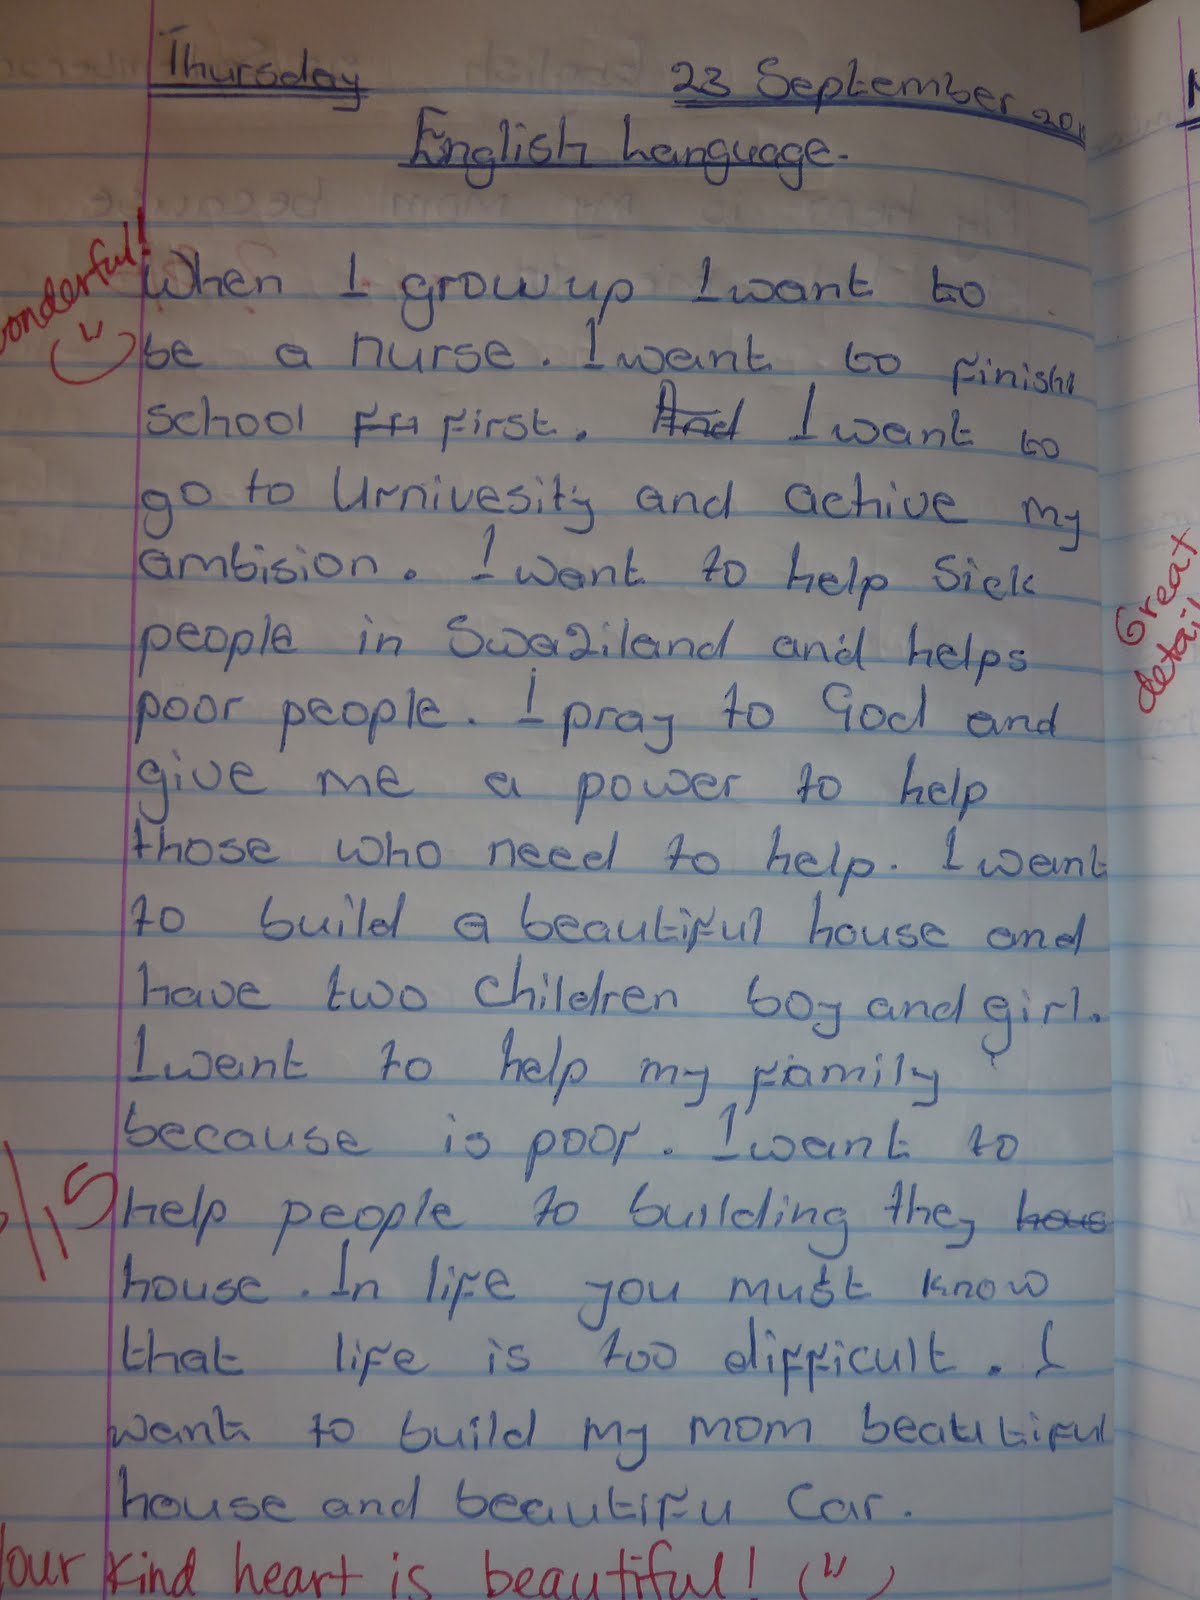 Thursday 23 September
English Language.
Wonderful!
When I grow up I want to
be a nurse. I want to finish
school first. And I want to
go to Urnivesity and achive my
ambision. I want to help sick
people in Swaziland and helps
poor people. I pray to God and
give me a power to help
those who need to help. I want
to build a beautiful house and
have two children boy and girl.
I want to help my family
because is poor. I want to
help people to building they hous
house. In life you must know
that life is too difficult. I
want to build my mom beautiful
house and beautifu car.
Your kind heart is beautiful!
Great
detail